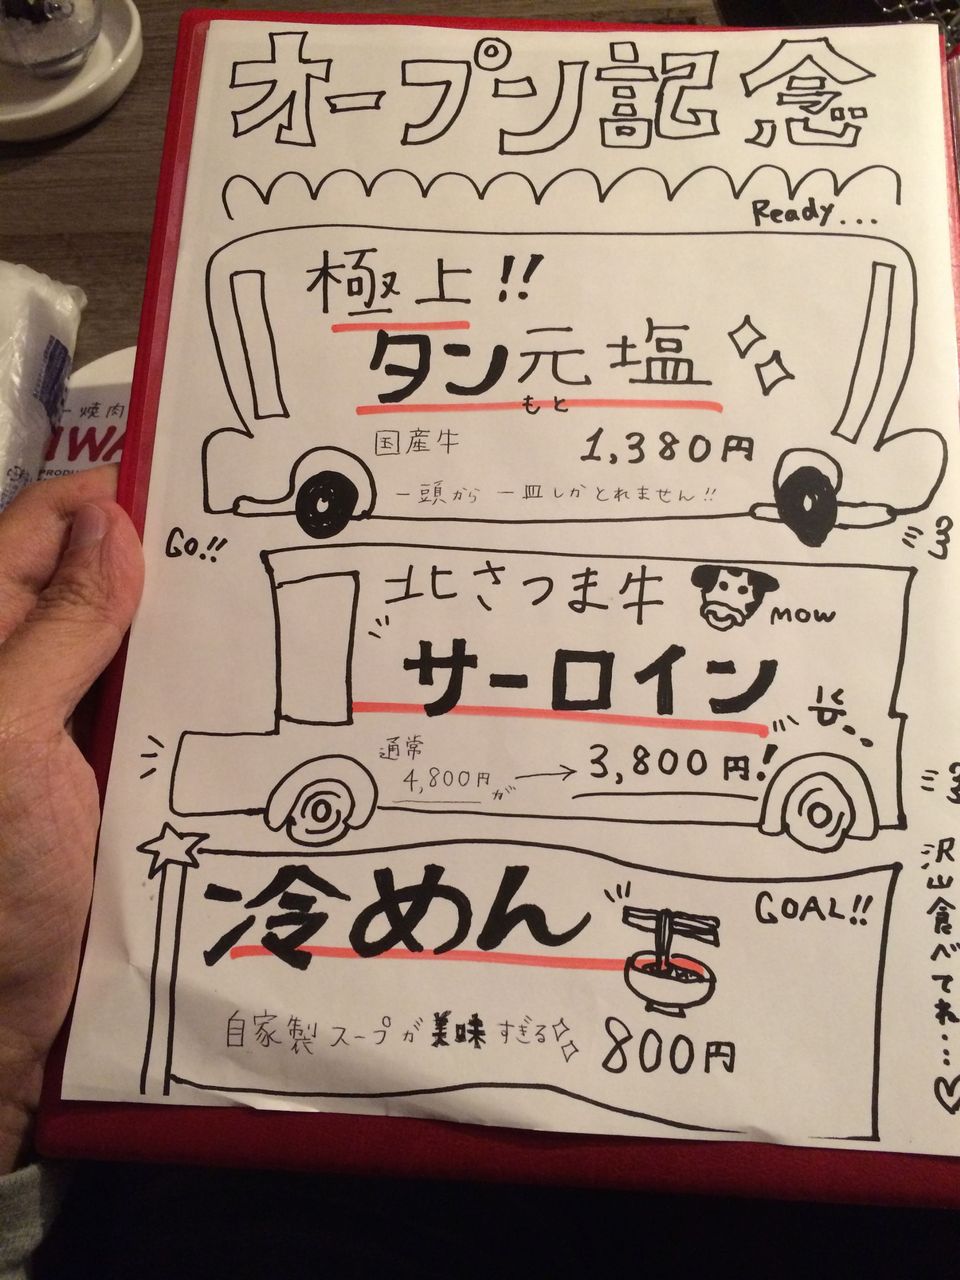 オープン記念
Ready...
極上!!
タン元塩
もと
国産牛 1,380円
一頭から一皿しかとれません!!
Go!!
北さつま牛
MOW
サーロイン
通常
4,800円が → 3,800円!
に
冷めん
GOAL!!
自家製スープが美味すぎる
800円
沢山食べてね...♡
焼肉
IWA
PRODU